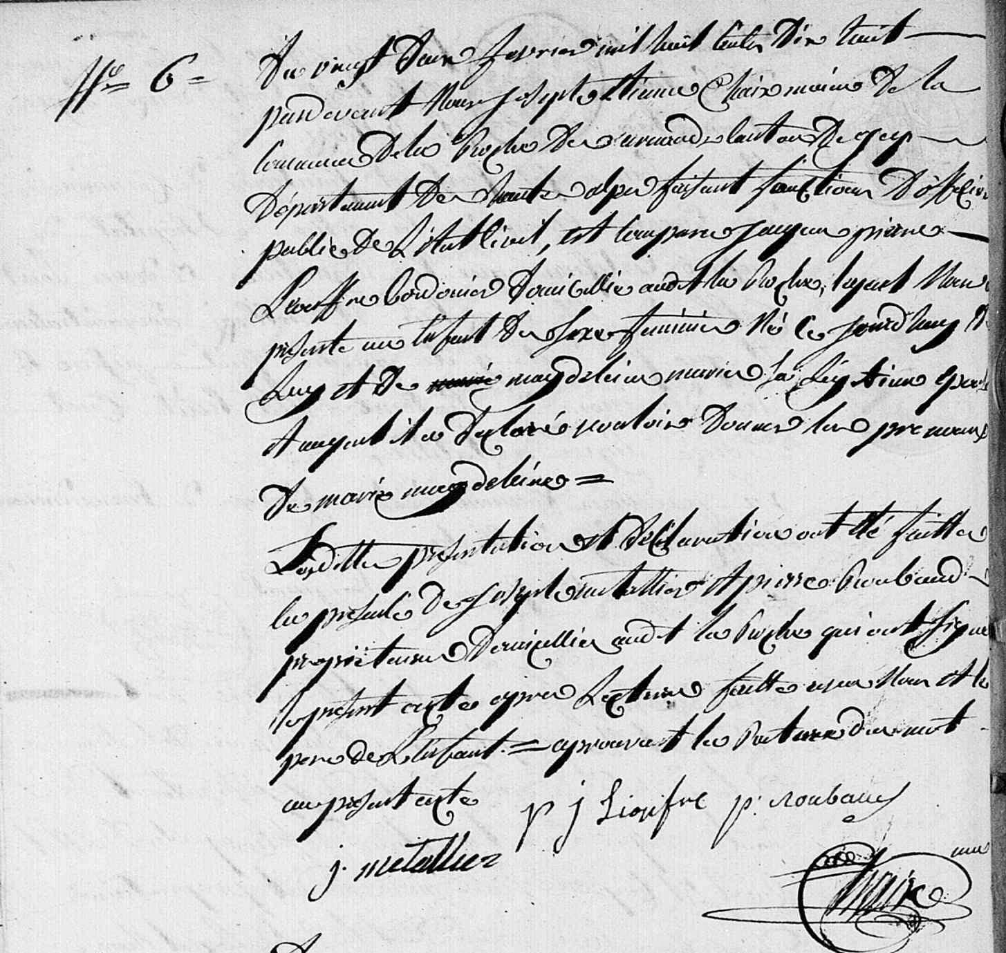 N° 6 =
Du vingt Deux fevrier mil huit cents Dix huit
pardevant Nous joseph etienne Chaix maire de la
Commune Dela Roche Des arnauds Canton De gap
Département Des hautes alpes faisant fonctions D'officier
public De L'état Civil, est Comparu jacques pierre
Lieoffre Cordonier Domicillié audit la Roche, lequel Nous
présente un Enfant Du Sexe feminin Né Ce jourd'huy De
Luy et De marie magdeleine marie Sa Légitime
et auquel il a Déclaré vouloir Donner les prenoms
De marie magdeleine =
Lesdittes présentation et Déclaration ont été faittes
En présence De joseph metallier et pierre Roubaud
propriétaires Domicilliés audit la Roche qui ont Signé
le présent acte apres Lecture faitte avec Nous et le
pere de L'Enfant = aprouvant la Rature D'un mot
au présent acte
p j Lioeifre p. Roubaud
j. metallier
Chaix